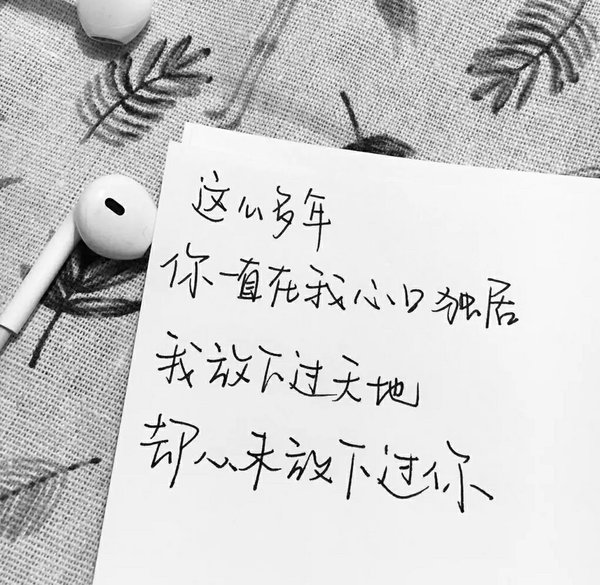 这么多年
你一直在我心口独居
我放下过天地
却从未放下过你